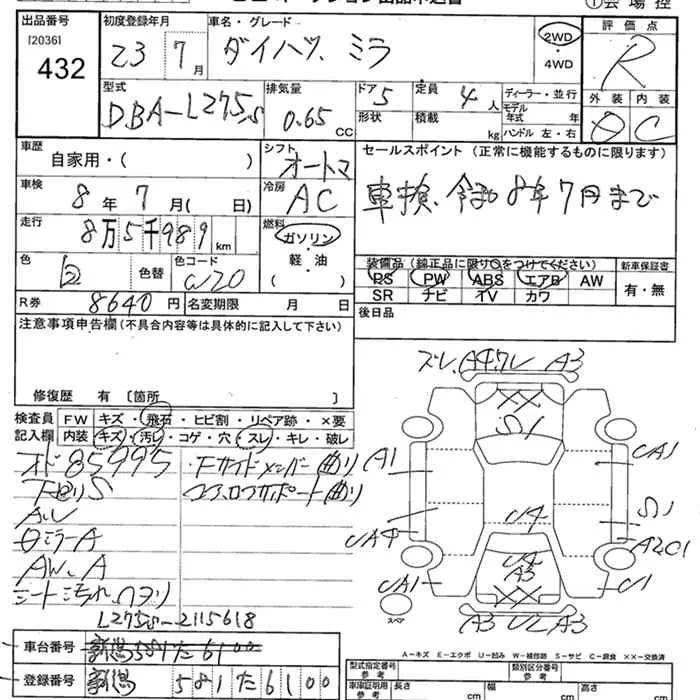 ①会場控
出品番号 初度登録年月 車名・グレード 評価点
[2036]
432
23 7月 ダイハツ ミラ 2WD・4WD R
型式 排気量 ドア 定員 ディーラー・並行 外装 内装
DBA-L275S 0.65CC 5 4人 モデル年式 年 C
形状 積載 kg ハンドル 左・右
車歴 シフト セールスポイント(正常に機能するものに限ります)
自家用・( ) オートマ
車検 冷房 車検、令和8年7月まで
8年7月( 日) AC
走行 燃料
8万5千989km ガソリン
軽・油
( )
色 色替 色コード 装備品(純正品に限り○をつけてください) 新車保証書
白 W20 PS PW ABS エアB AW 有・無
SR ナビ TV カワ
R券 8640円 名変期限 月 日 後日品
注意事項申告欄(不具合内容等は具体的に記入して下さい)
修復歴 有 〔箇所 〕
検査員 FW キズ・飛石・ヒビ割・リペア跡・×要
記入欄 内装 キズ・汚れ・コゲ・穴・スレ・キレ・破レ
オド85995 ・Fサイドメンバー曲り
下廻りS ・コアロアサポート曲り
A,ル
日ミラーA
AW、A
シート汚れ、
L275S-2115618
車台番号 新潟581た6100
登録番号 新潟581た6100
ズレ、A4 ワレ A3
XX
S1
A1 UA1
S1
U4
UA4 A2C1
U4
A3
UA1 U1
XX
スペア
A3 U2 A3
A-キズ E-エクボ U-凹み W-補修跡 S-サビ C-腐食 XX-交換済
型式指定番号 類別区分番号
参考
車庫証明用 長さ 幅 高さ
参考 cm cm cm